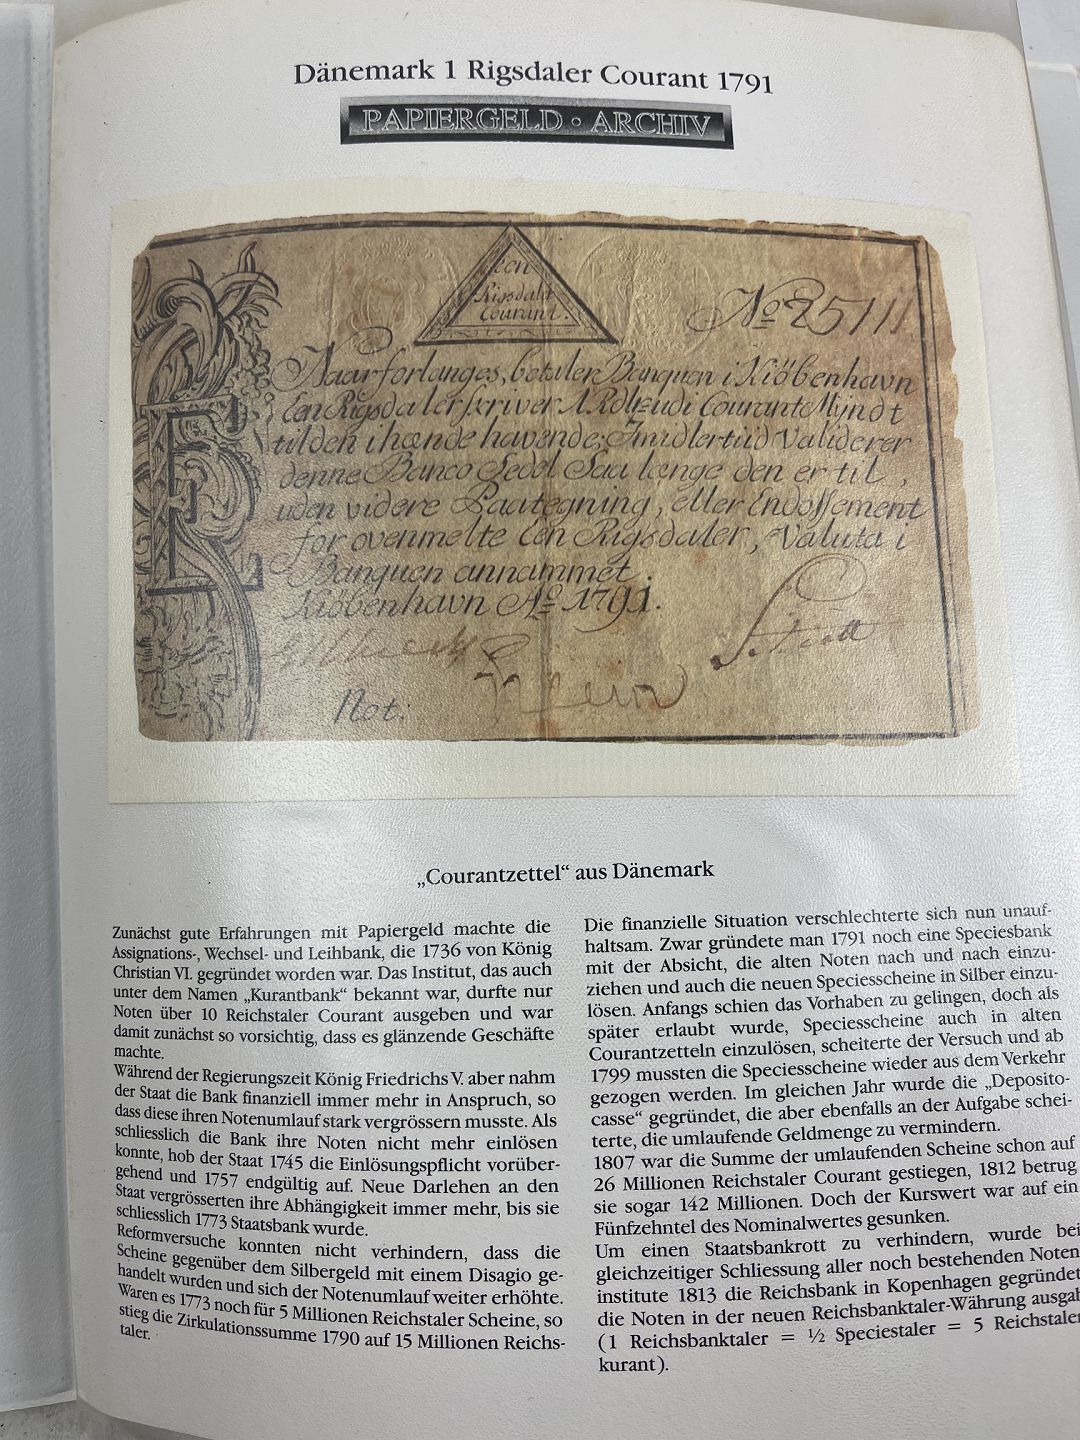 Dänemark 1 Rigsdaler Courant 1791
PAPIERGELD • ARCHIV
een
Rigsdaler
Courant.
No 25111
Naar forlanges, betaler Banquen i Kiöbenhavn
Een Rigsdaler skriver 1 Rdlr udi Courant Myndt
til den ihænde havende; Imidlertiid Validerer
denne Banco Sedel Saa længe den er til,
uden videre Paategning, eller Endossement
for ovenmelte Een Rigsdaler, Valuta i
Banquen annammet.
Kiöbenhavn Ao 1791.
Not:
„Courantzettel“ aus Dänemark
Zunächst gute Erfahrungen mit Papiergeld machte die
Assignations-, Wechsel- und Leihbank, die 1736 von König
Christian VI. gegründet worden war. Das Institut, das auch
unter dem Namen „Kurantbank“ bekannt war, durfte nur
Noten über 10 Reichstaler Courant ausgeben und war
damit zunächst so vorsichtig, dass es glänzende Geschäfte
machte.
Während der Regierungszeit König Friedrichs V. aber nahm
der Staat die Bank finanziell immer mehr in Anspruch, so
dass diese ihren Notenumlauf stark vergrössern musste. Als
schliesslich die Bank ihre Noten nicht mehr einlösen
konnte, hob der Staat 1745 die Einlösungspflicht vorüber-
gehend und 1757 endgültig auf. Neue Darlehen an den
Staat vergrösserten ihre Abhängigkeit immer mehr, bis sie
schliesslich 1773 Staatsbank wurde.
Reformversuche konnten nicht verhindern, dass die
Scheine gegenüber dem Silbergeld mit einem Disagio ge-
handelt wurden und sich der Notenumlauf weiter erhöhte.
Waren es 1773 noch für 5 Millionen Reichstaler Scheine, so
stieg die Zirkulationssumme 1790 auf 15 Millionen Reichs-
taler.
Die finanzielle Situation verschlechterte sich nun unauf-
haltsam. Zwar gründete man 1791 noch eine Speciesbank
mit der Absicht, die alten Noten nach und nach einzu-
ziehen und auch die neuen Speciesscheine in Silber einzu-
lösen. Anfangs schien das Vorhaben zu gelingen, doch als
später erlaubt wurde, Speciesscheine auch in alten
Courantzetteln einzulösen, scheiterte der Versuch und ab
1799 mussten die Speciesscheine wieder aus dem Verkehr
gezogen werden. Im gleichen Jahr wurde die „Deposito-
casse“ gegründet, die aber ebenfalls an der Aufgabe schei-
terte, die umlaufende Geldmenge zu vermindern.
1807 war die Summe der umlaufenden Scheine schon auf
26 Millionen Reichstaler Courant gestiegen, 1812 betrug
sie sogar 142 Millionen. Doch der Kurswert war auf ein
Fünfzehntel des Nominalwertes gesunken.
Um einen Staatsbankrott zu verhindern, wurde bei
gleichzeitiger Schliessung aller noch bestehenden Noten
institute 1813 die Reichsbank in Kopenhagen gegründet
die Noten in der neuen Reichsbanktaler-Währung ausgab
(1 Reichsbanktaler = ½ Speciestaler = 5 Reichstaler
kurant).